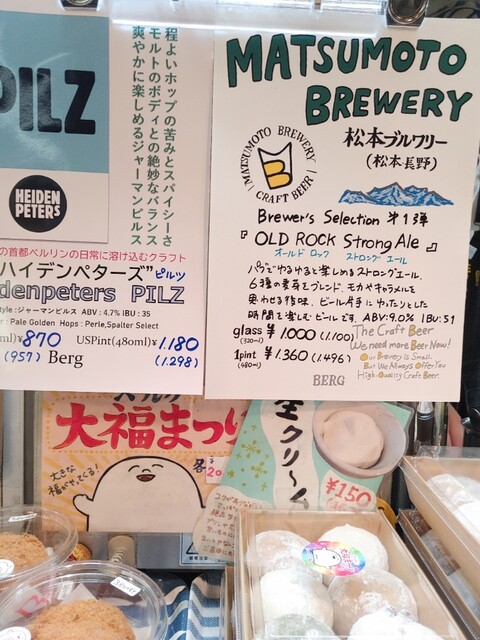 PILZ
HEIDEN
PETERS
程よいホップの苦みとスパイシーさ
モルトのボディとの絶妙なバランス
爽やかに楽しめるジャーマンピルス
の首都ベルリンの日常に溶け込むクラフト
ハイデンペターズ”ピルツ
denpeters PILZ
tyle:ジャーマンピルス ABV:4.7% IBU:35
:Pale Golden Hops:Perle,Spalter Select
ml)¥870 USPint(480ml)¥1.180
(957) Berg (1.298)
MATSUMOTO
BREWERY
MATSUMOTO BREWERY
CRAFT BEER
松本ブルワリー
(松本長野)
Brewer's Selection 第1弾
『OLD ROCK Strong Ale』
オールド ロック ストロング エール
パブでゆるゆると楽しめるストロングエール。
6種の麦芽とブレンド、モカやキャラメルを
思わせる後味、ビール片手にゆったりとした
時間を楽しむビールです。ABV:9.0% IBU:51
glass ¥1.000 (1.100)
(320ml)
1pint ¥1.360 (1.496)
(480ml)
The Craft Beer
We need more Beer Now!
Our Brewery is Small.
But We Always Offer You
High-Quality Craft Beer.
BERG
大福まつり
大きな
福がやってくる!
各
生クリーム
¥150